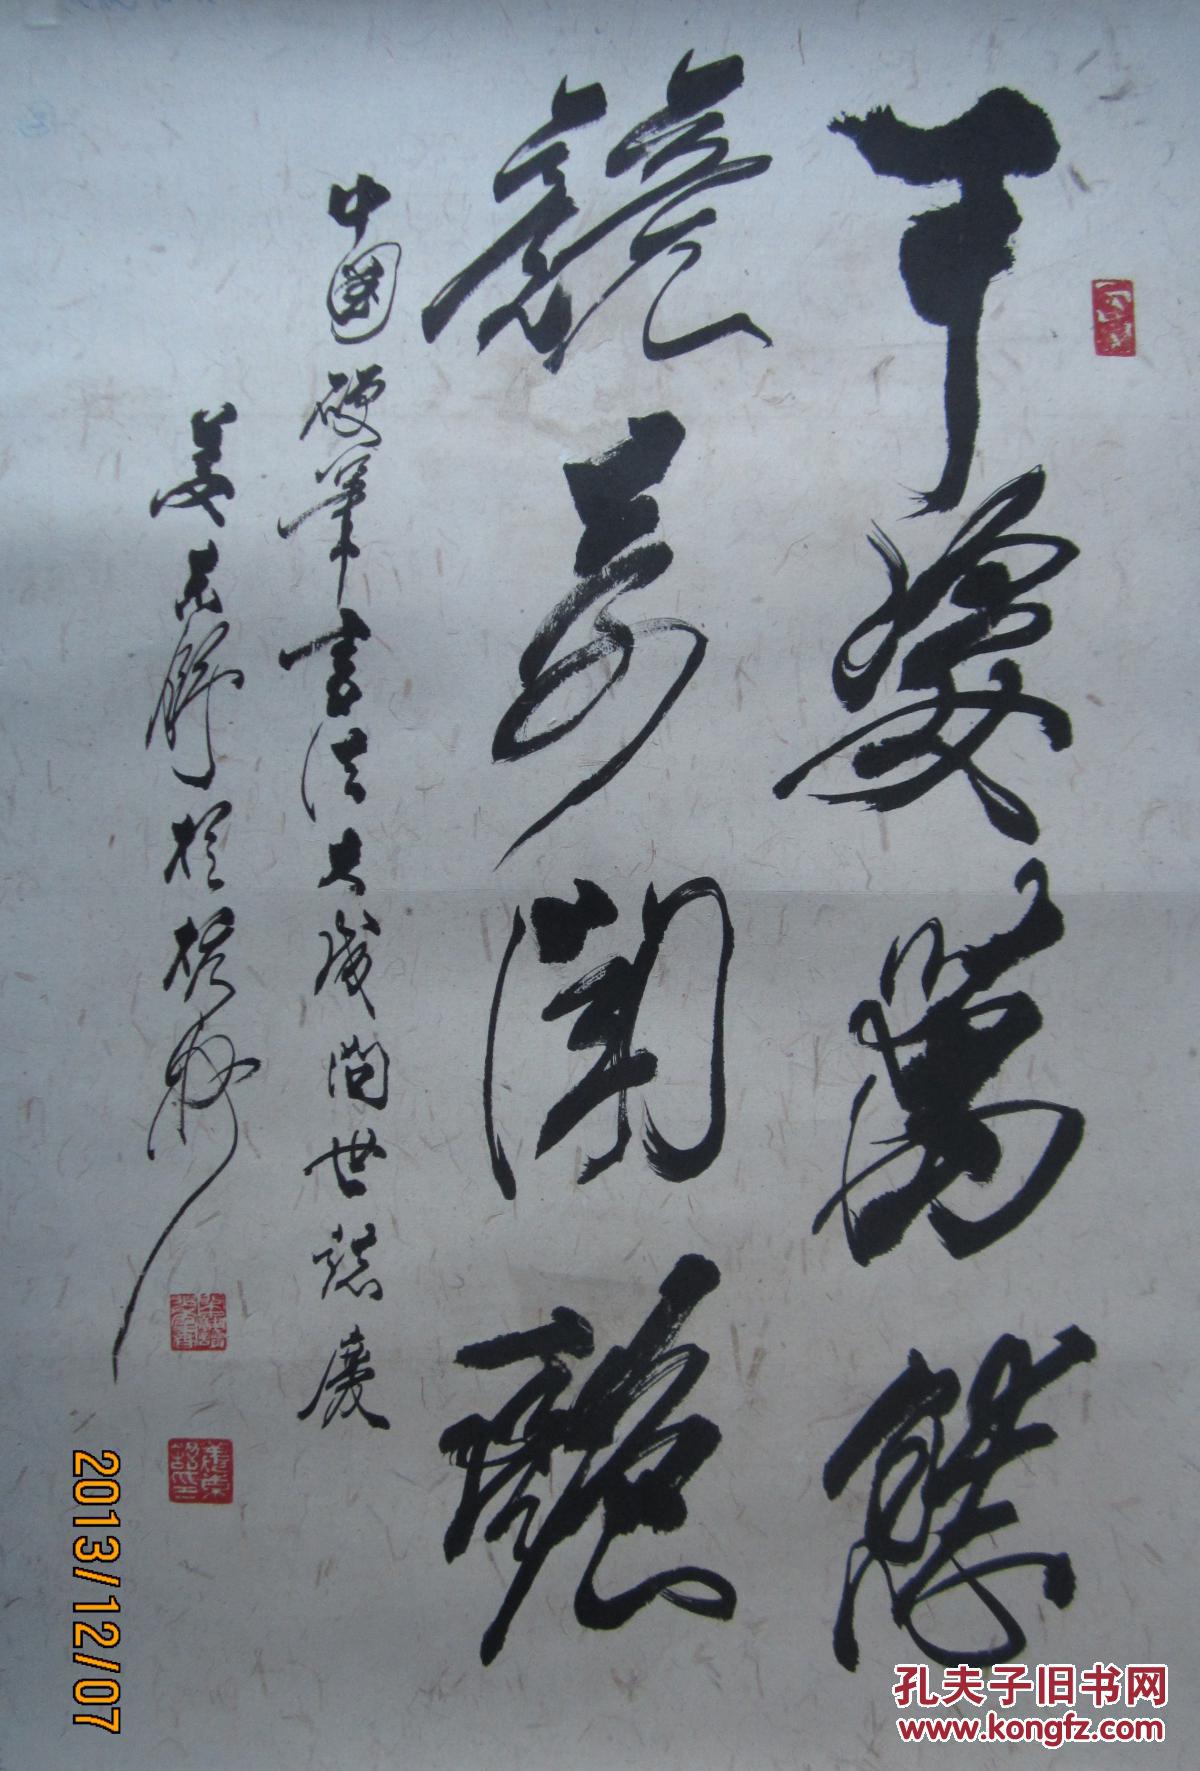 千姿萬態
競秀闘艷
中國硬筆書法大成問世誌慶
姜东舒於杭州
2013/12/07
孔夫子旧书网
www.kongfz.com